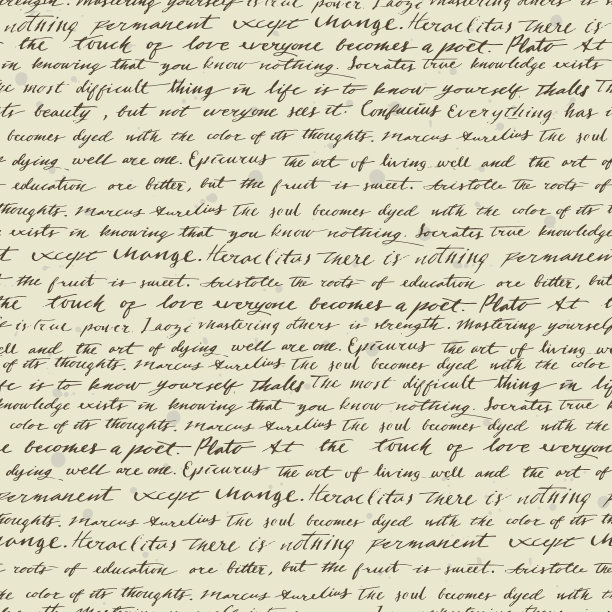 strength. Mastering yourself is true power. Laozi Mastering others is
nothing permanent except change. Heraclitus There is
the touch of love everyone becomes a poet. Plato At
in knowing that you know nothing. Socrates True knowledge exists
most difficult thing in life is to know yourself. Thalls The
its beauty, but not everyone sees it. Confucius Everything has
becomes dyed with the color of its thoughts. Marcus Aurelius The soul
dying well are one. Epicurus The art of living well and the art of
education are bitter, but the fruit is sweet. Aristotle The roots of
thoughts. Marcus Aurelius The soul becomes dyed with the color of its
exists in knowing that you know nothing. Socrates True knowledge
except change. Heraclitus There is nothing permanent
the fruit is sweet. Aristotle The roots of education are bitter, but
the touch of love everyone becomes a poet. Plato At
is true power. Laozi Mastering others is strength. Mastering yourself
well and the art of dying well are one. Epicurus The art of living
of its thoughts. Marcus Aurelius The soul becomes dyed with the color
life is to know yourself. Thalls The most difficult thing in
knowledge exists in knowing that you know nothing. Socrates True
color of its thoughts. Marcus Aurelius The soul becomes dyed with the
becomes a poet. Plato At the touch of love everyone
dying well are one. Epicurus The art of living well and the art of
permanent except change. Heraclitus There is nothing
thoughts. Marcus Aurelius The soul becomes dyed with the color of its
change. Heraclitus There is nothing permanent except
roots of education are bitter, but the fruit is sweet. Aristotle The
the color of its thoughts. Marcus Aurelius The soul becomes dyed with